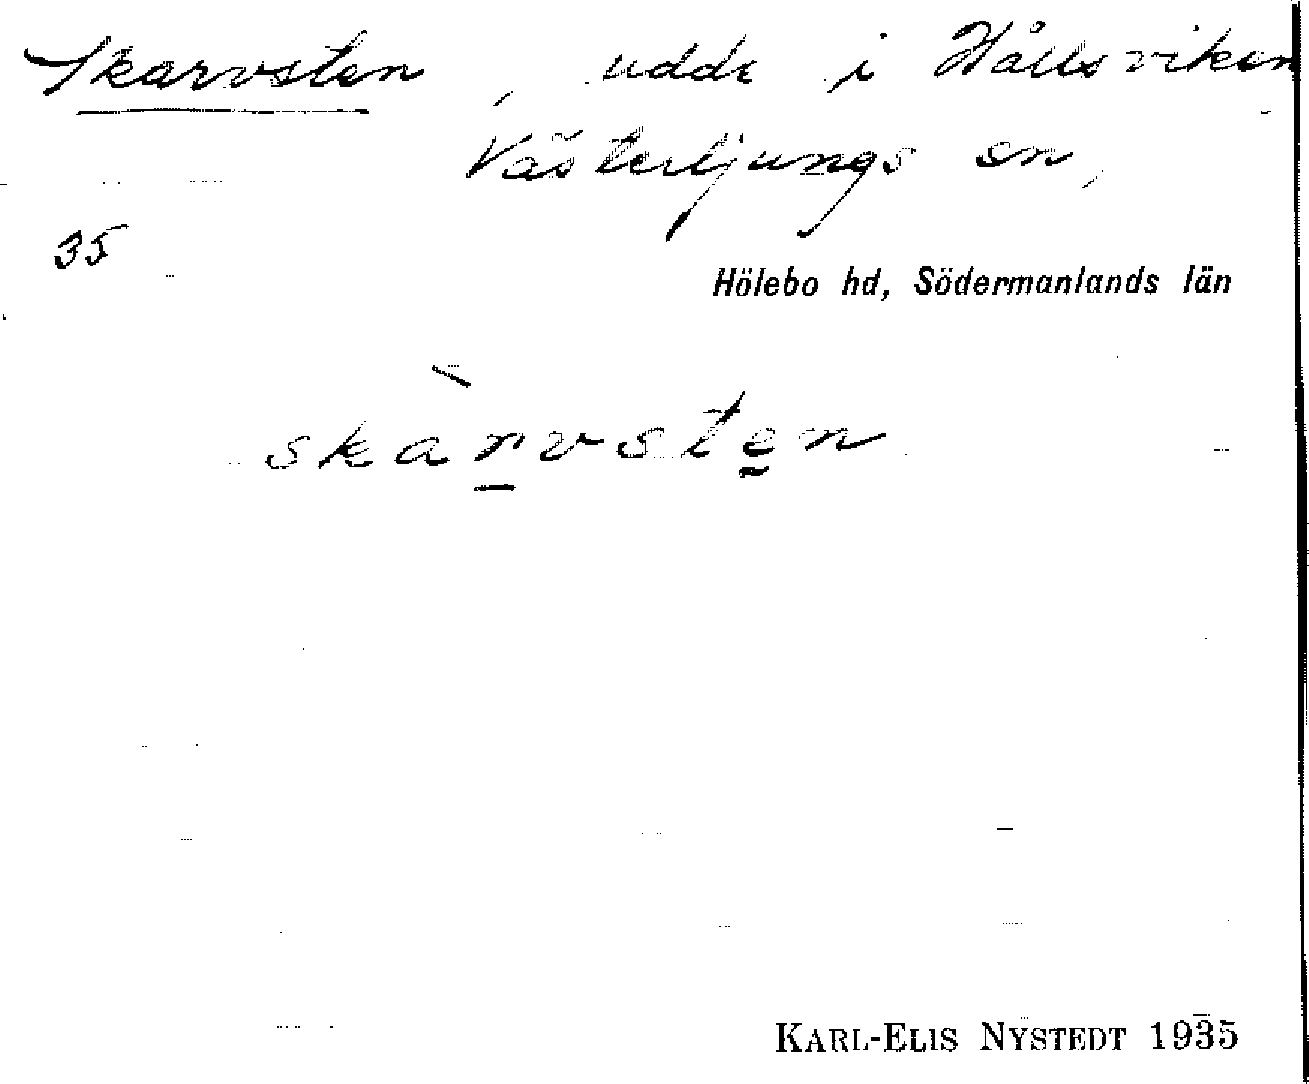 Skarvsten, udde i Hållsviken
Västerljungs sn,
35
Hölebo hd, Södermanlands län
skàrvsten
KARL-ELIS NYSTEDT 1935